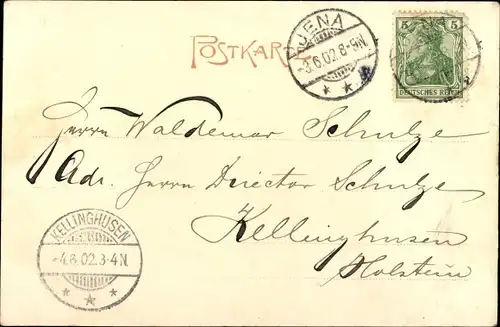 POSTKARTE
JENA
-3.6.02.8-9N.
5 5
DEUTSCHES REICH
Herrn Waldemar Schulze
Adr. Herrn Director Schulze
Kellinghusen
Holstein
KELLINGHUSEN
-4.6.02.3-4N.